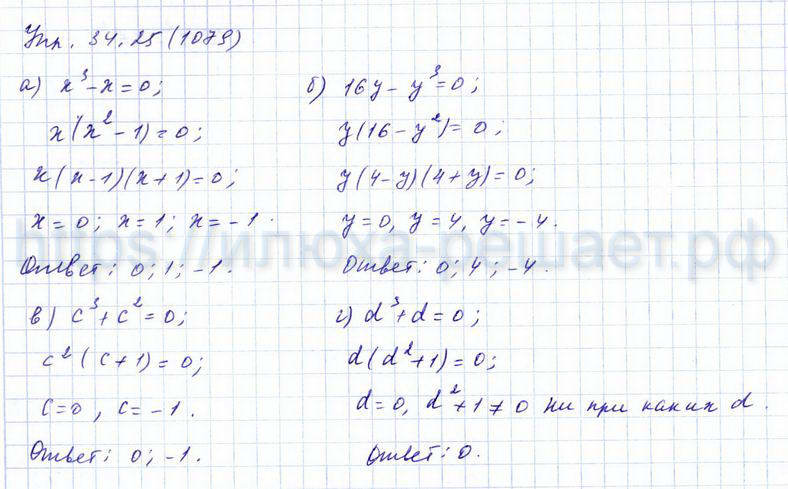 Упр. 34.25 (1079)
а) x³ - x = 0;
x(x² - 1) = 0;
x(x - 1)(x + 1) = 0;
x = 0; x = 1; x = -1.
Ответ: 0; 1; -1.
б) 16y - y³ = 0;
y(16 - y²) = 0;
y(4 - y)(4 + y) = 0;
y = 0, y = 4, y = -4.
Ответ: 0; 4; -4.
в) c³ + c² = 0;
c²(c + 1) = 0;
c = 0, c = -1.
Ответ: 0; -1.
г) d³ + d = 0;
d(d² + 1) = 0;
d = 0, d² + 1 ≠ 0 ни при каких d.
Ответ: 0.
https://илюха-решает.рф